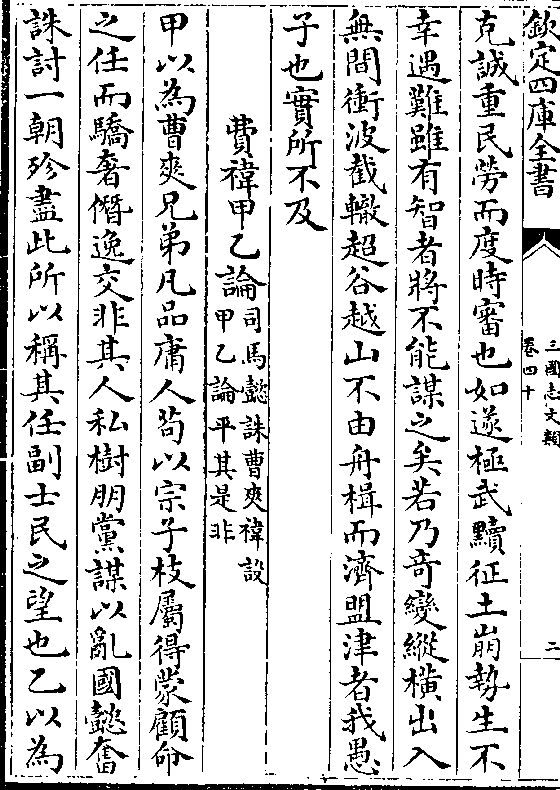 欽定四庫全書
三國志文類
卷四十
二
克誠重民勞而度時審也如遂極武黷征土崩勢生不
幸遇難雖有智者將不能謀之矣若乃奇變縱橫出入
無間衝波截轍超谷越山不由舟楫而濟盟津者我愚
子也實所不及
費禕甲乙論司馬懿誅曹爽禕設
甲乙論平其是非
甲以為曹爽兄弟凡品庸人茍以宗子枝屬得蒙顧命
之任而驕奢僭逸交非其人私樹朋黨謀以亂國懿奮
誅討一朝殄盡此所以稱其任副士民之望也乙以為